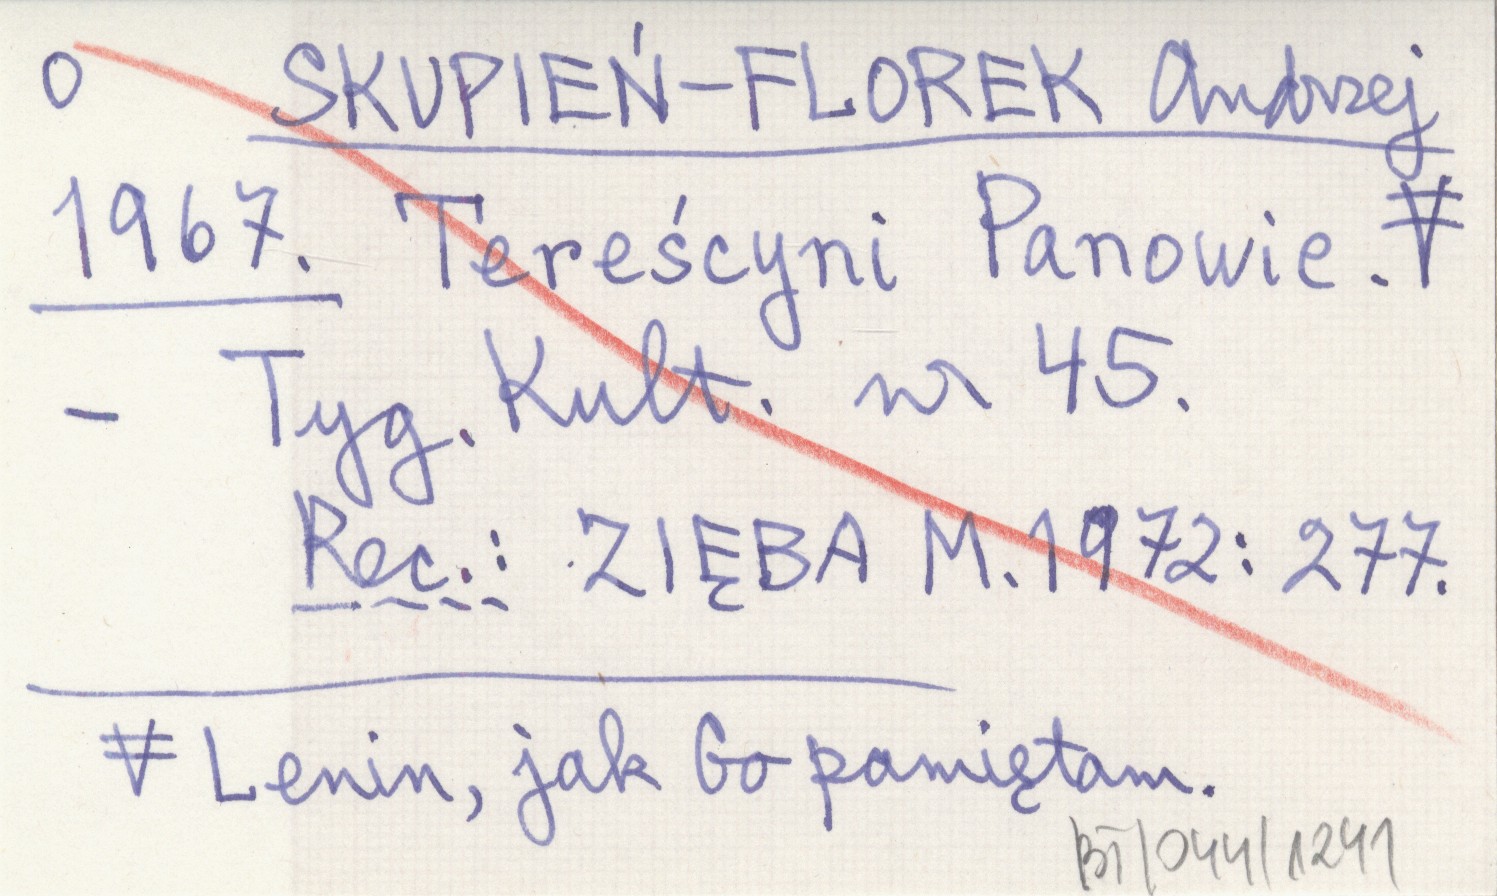 O SKUPIEŃ-FLOREK Andrzej
1967. Tereścyni Panowie.
- Tyg. Kult. nr 45.
Rec.: ZIĘBA M. 1972: 277.
Lenin, jak Go pamiętam.
BT/044/1241